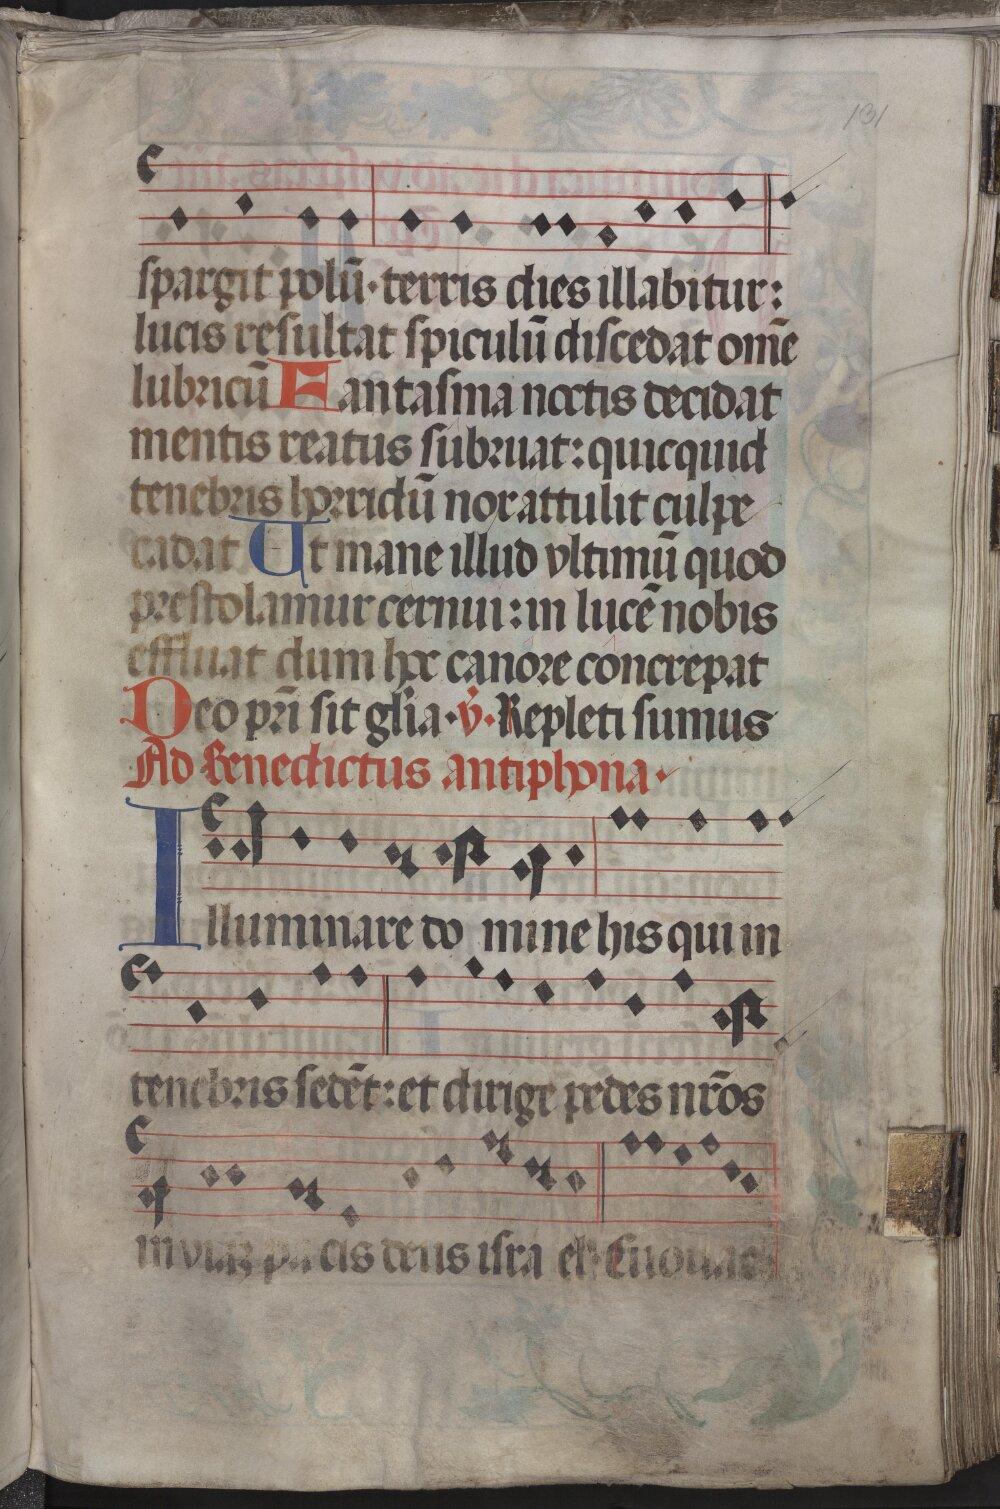 131
spargit polū·terris dies illabitur:
lucis resultat spiculū discedat om̄e
lubricū Fantasma noctis decidat
mentis reatus subruat: quicquid
tenebris horridū nox attulit culpe
cadat Ut mane illud vltimū quod
prestolamur cernui: in lucē nobis
effluat dum hoc canore concrepat
Deo pr̄i sit gl̄ia·v̇·Repleti sumus
Ad Benedictus antiphona·
Illuminare do mine his qui in
tenebris sedēt: et dirige pedes nr̄os
in viaꝫ pacis deus isra el· Euouae